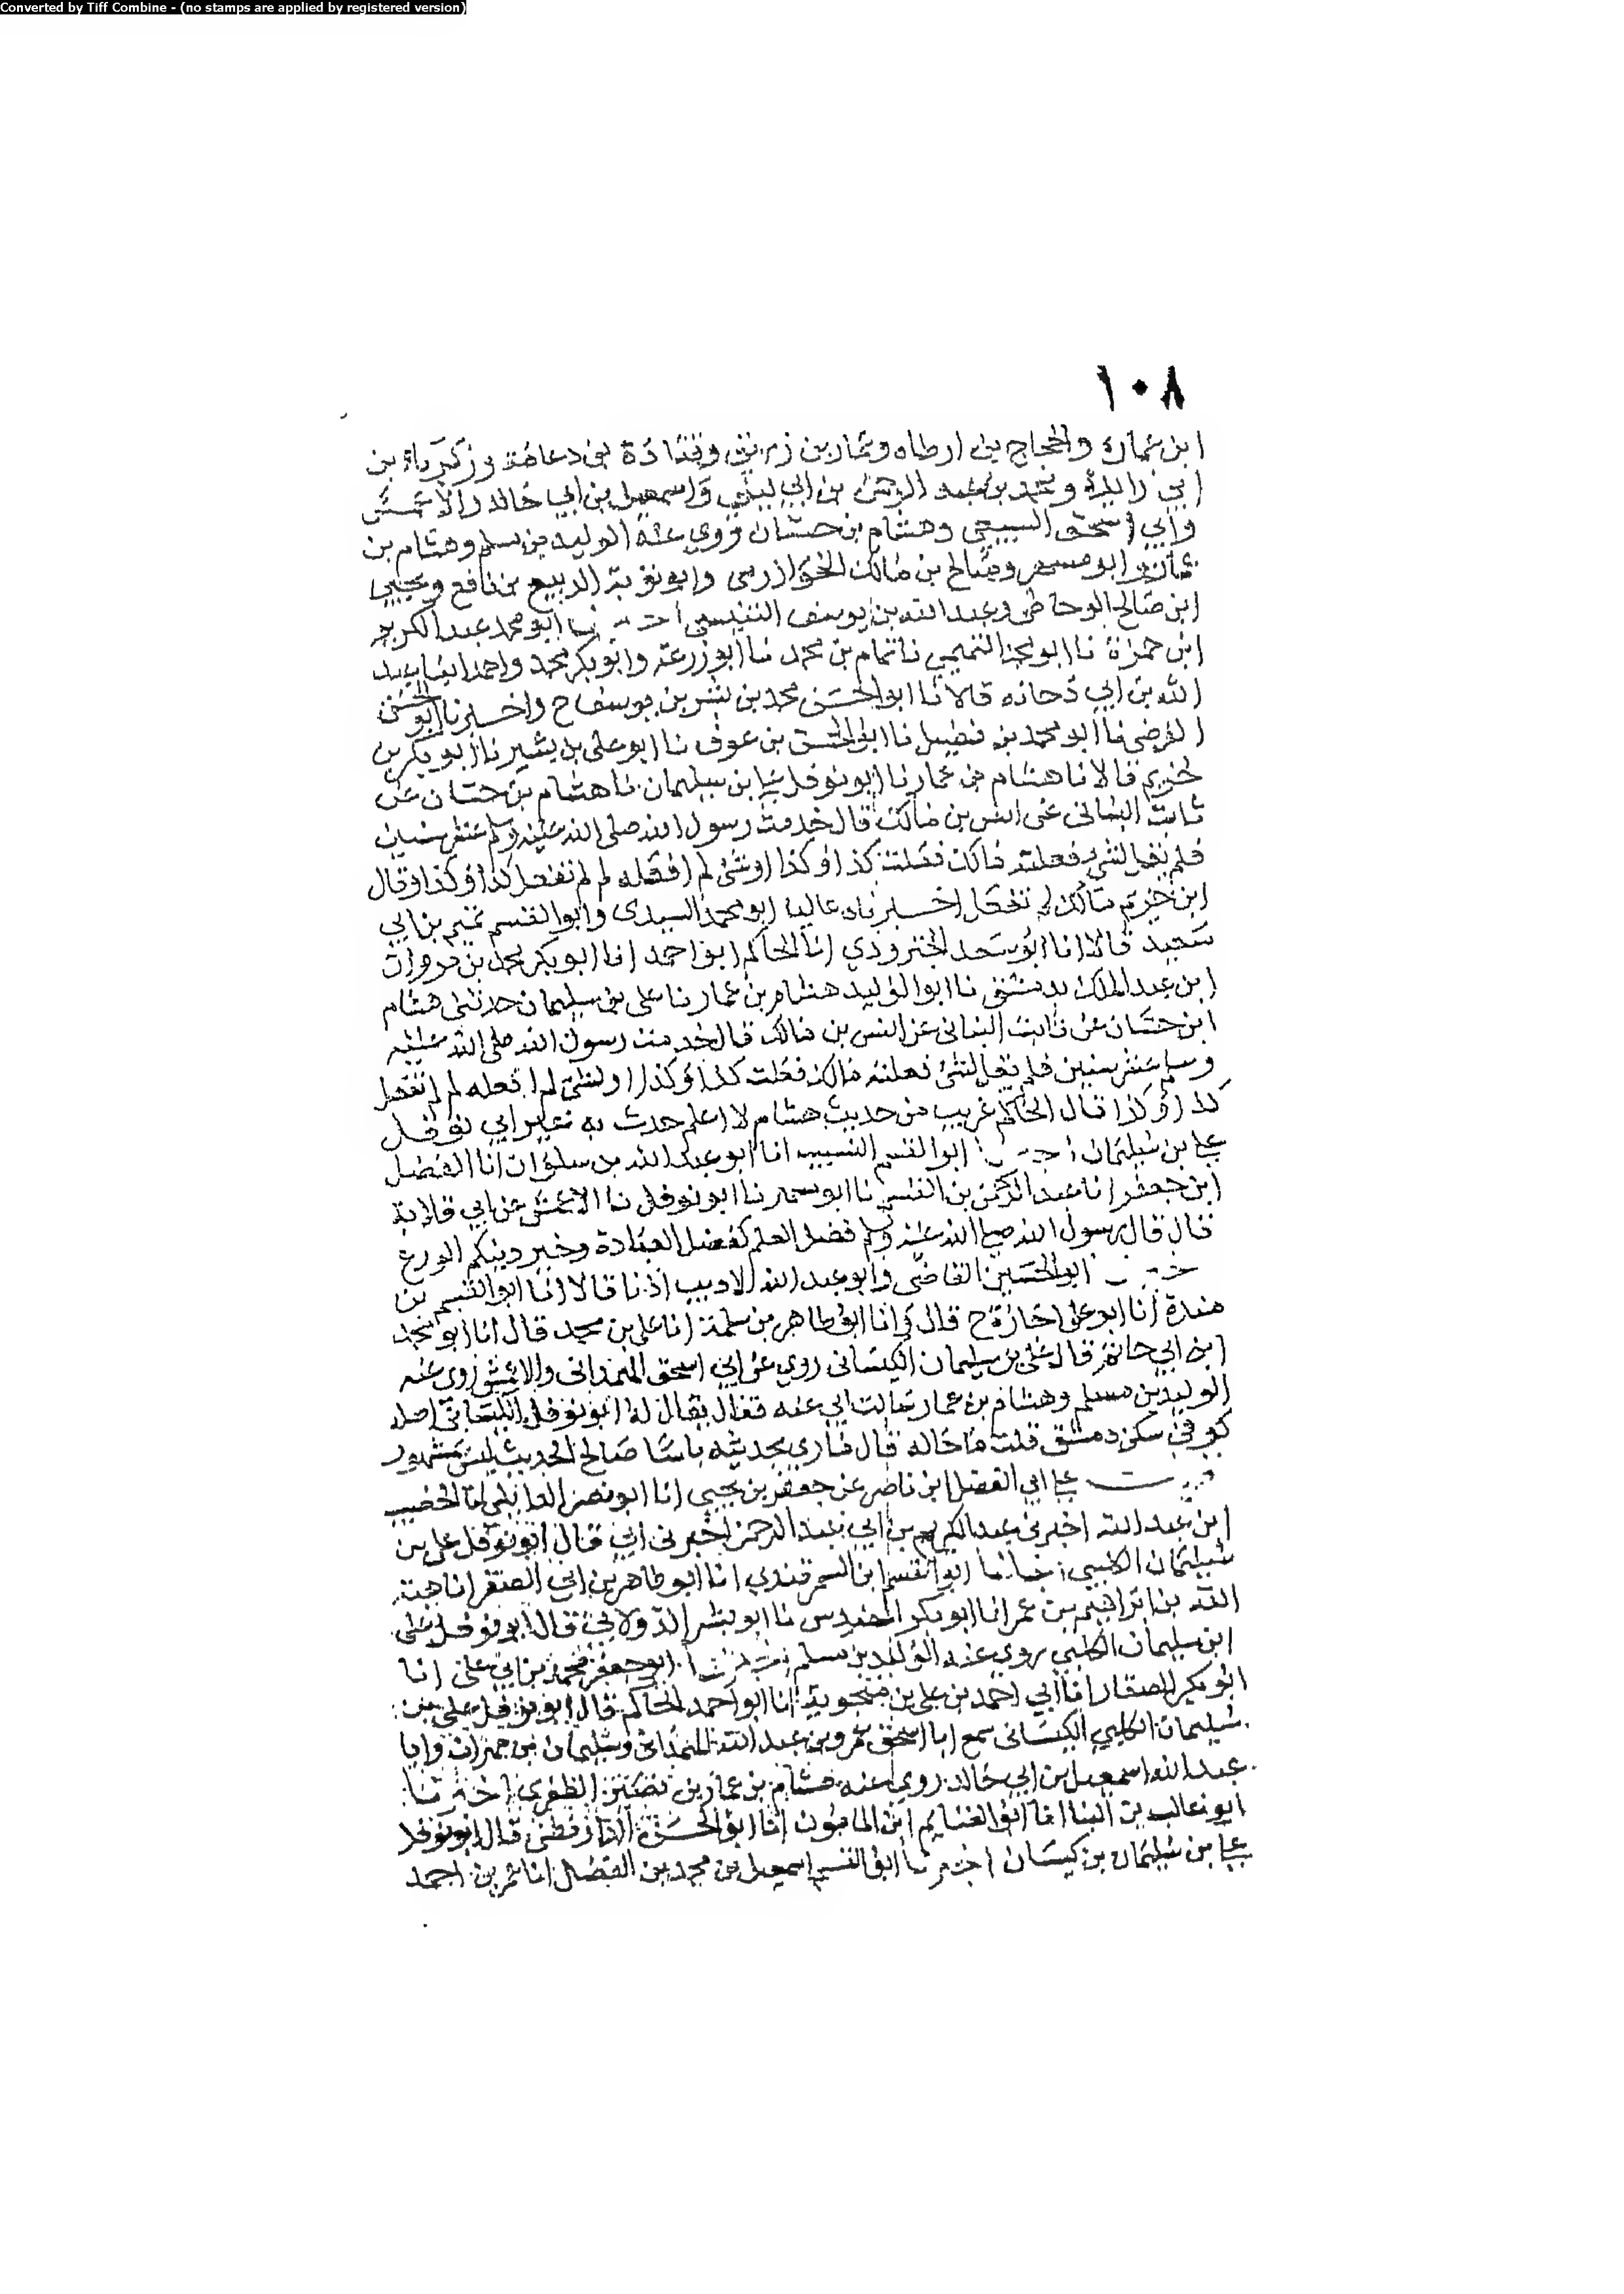 Converted by Tiff Combine - (no stamps are applied by registered version)
١٠٨
ابن عمارة والحجاج بن ارطاه وعمار بن زريق وقتادة بن دعامة وزكرياء بن
ابي زايدة ومحمد بن عبد الرحمن بن ابي ليلى واسمعيل بن ابي خالد والاعمش
وابي اسحق السبيعي وهشام بن حسان روي عنه الوليد بن مسلم وهشام بن
عمار وابو مسهر وصالح بن مالك الخوارزمى وابو توبة الربيع بن نافع ويحيى
ابن صالح الوحاظي وعبد الله بن يوسف التنيسي ابو محمد عبد الكريم
ابن حمزة نا ابو محمد التميمي نا تمام بن محمد نا ابو زرعة وابو بكر محمد واحمد ابنا عبد
الله بن ابي دجانه قالا نا ابو الحسن محمد بن بشر بن يوسف ح واخبرنا ابو الحسن
الفرضي نا ابو محمد بن فضيل نا ابو الحسن بن عوف نا ابو علي بن منير نا ابو بكر بن
خريم قالا نا هشام بن عمار نا ابو نوفل علي بن سليمان نا هشام بن حسان عن
ثابت البنانى عن انس بن مالك قال خدمت رسول الله صلى الله عليه وسلم عشر سنين
فلم يقل لشيء فعلته مالك فعلت كذا وكذا او شئ لم افعله لم لم تفعل كذا وكذا وقال
ابن خريم مالك لم تفعل اخبرناه عاليا ابو محمد السيدى وابو القسم تميم بن ابي
سعيد قالا انا ابو سعد الجنزرودي انا الحاكم ابو احمد انا ابو بكر محمد بن مروان
ابن عبد الملك بدمشق نا ابو الوليد هشام بن عمار نا علي بن سليمان حدثني هشام
ابن حسان عن ثابت البناني عن انس بن مالك قال خدمت رسول الله صلى الله عليه
وسلم عشر سنين فلم يقل لشئ فعلته مالك فعلت كذا وكذا او لشئ لم افعله لم لم تفعل
كذا وكذا قال الحاكم غريب من حديث هشام لا اعلم حدث به غير ابي نوفل
علي بن سليمان ابو القسم النسيب انا ابو عبد الله بن سلوان انا الفضل
ابن جعفر انا عبد الرحمن بن القسم نا ابو مسهر نا ابو نوفل نا الاعمش عن ابي قلابة
قال قال رسول الله صلى الله عليه وسلم فضل العلم كفضل العبادة وخير دينكم الورع
ابو الحسين القاضي وابو عبد الله الاديب اذنا قالا انا ابو القسم بن
مندة انا ابو علي اجازة ح قال وانا ابو طاهر بن سلمة انا علي بن محمد قال انا ابو محمد
ابن ابي حاتم قال علي بن سليمان الكيسانى روى عن ابي اسحق الهمدانى والاعمش روى عنه
الوليد بن مسلم وهشام بن عمار سالت ابي عنه فقال يقال له ابو نوفل الكيساني اصله
كوفي سكن دمشق قلت ما حاله قال ما اري بحديثه باسا صالح الحديث ليس بمشهور
علي ابي الفضل ابن ناصر عن جعفر بن يحيى انا ابو نصر الوايلي انا الخصيب
ابن عبد الله اخبرني عبد الكريم بن ابي عبد الرحمن اخبرنى ابي قال ابو نوفل علي بن
سليمان الكلبي ابو القسم ابن السمرقندي انا ابو طاهر بن ابي الصقر انا هبة
الله بن ابراهيم بن عمر انا ابو بكر المهندس نا ابو بشر الدولابي قال ابو نوفل علي
ابن سليمان الكلبي يروي عنه الوليد بن مسلم ابو جعفر محمد بن ابي علي انا
ابو بكر الصفار انا احمد بن علي بن منجوية انا ابو احمد الحاكم قال ابو نوفل علي بن
سليمان الكلبي الكيسانى سمع ابا اسحق عمرو بن عبد الله الهمداني وسليمان بن مهران وابا
عبد الله اسمعيل بن ابي خالد روي عنه هشام بن عمار بن نصير الظفري اخبرنا
ابو غالب بن البنا انا ابو الغنايم ابن المامون انا ابو الحسن الدارقطني قال ابو نوفل
علي بن سليمان بن كيسان اخبرنا ابو القسم اسمعيل بن محمد بن الفضل انا عمر بن احمد